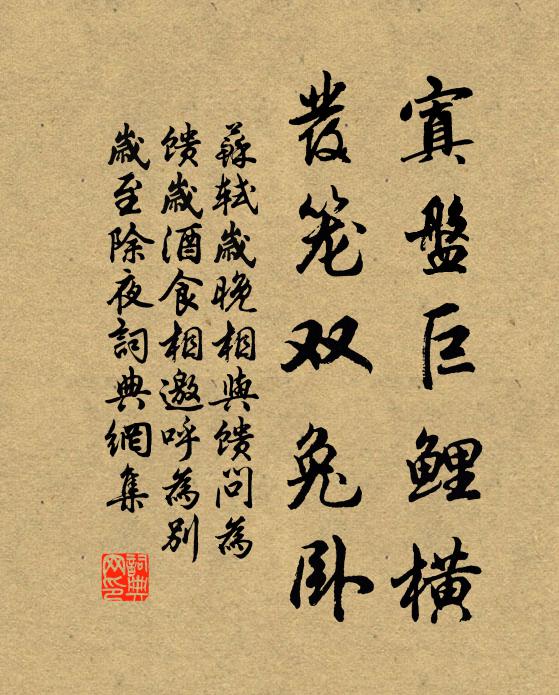 寘盤巨鯉橫
發笼双兔卧
蘇轼歲晚相與馈問為
馈歲酒食相邀呼為别
歲至除夜詞典網集
詞典网印